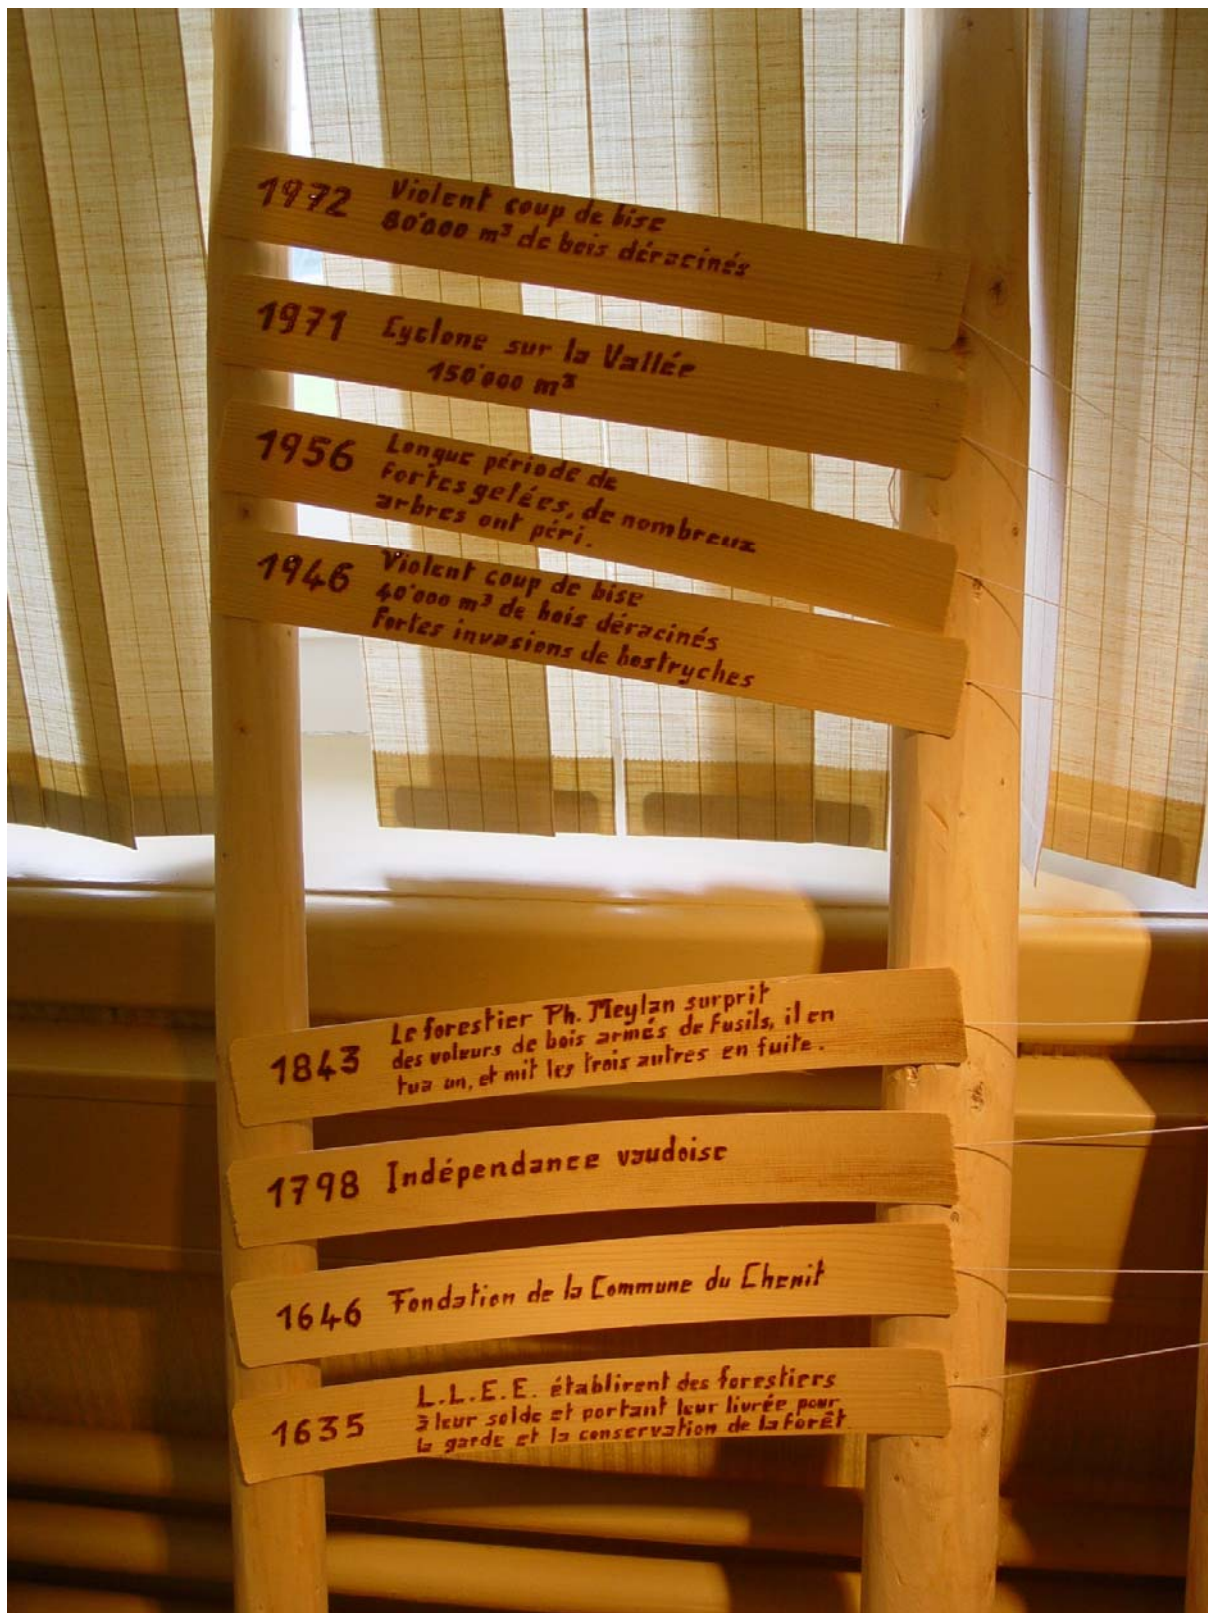 1972 Violent coup de bise
80'000 m³ de bois déracinés
1971 Cyclone sur la Vallée
150'000 m³
1956 Longue période de
fortes gelées, de nombreux
arbres ont péri.
1946 Violent coup de bise
40'000 m³ de bois déracinés
Fortes invasions de bostryches
1843 Le forestier Ph. Meylan surprit
des voleurs de bois armés de fusils, il en
tua un, et mit les trois autres en fuite.
1798 Indépendance vaudoise
1646 Fondation de la Commune du Chenit
1635 L.L.E.E. établirent des forestiers
à leur solde et portant leur livrée pour
la garde et la conservation de la forêt